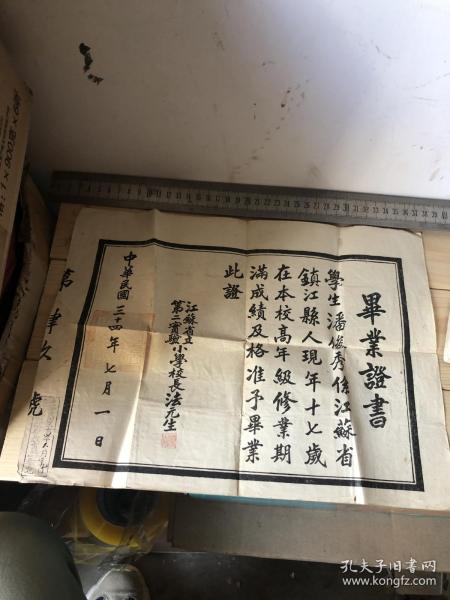 畢業證書
學生潘俊秀係江蘇省
鎮江縣人現年十七歲
在本校高年級修業期
滿成績及格准予畢業
此證
江蘇省立
第二實驗小學校長法元生
中華民國三十四年七月一日
第肆玖號
孔夫子旧书网
www.kongfz.com